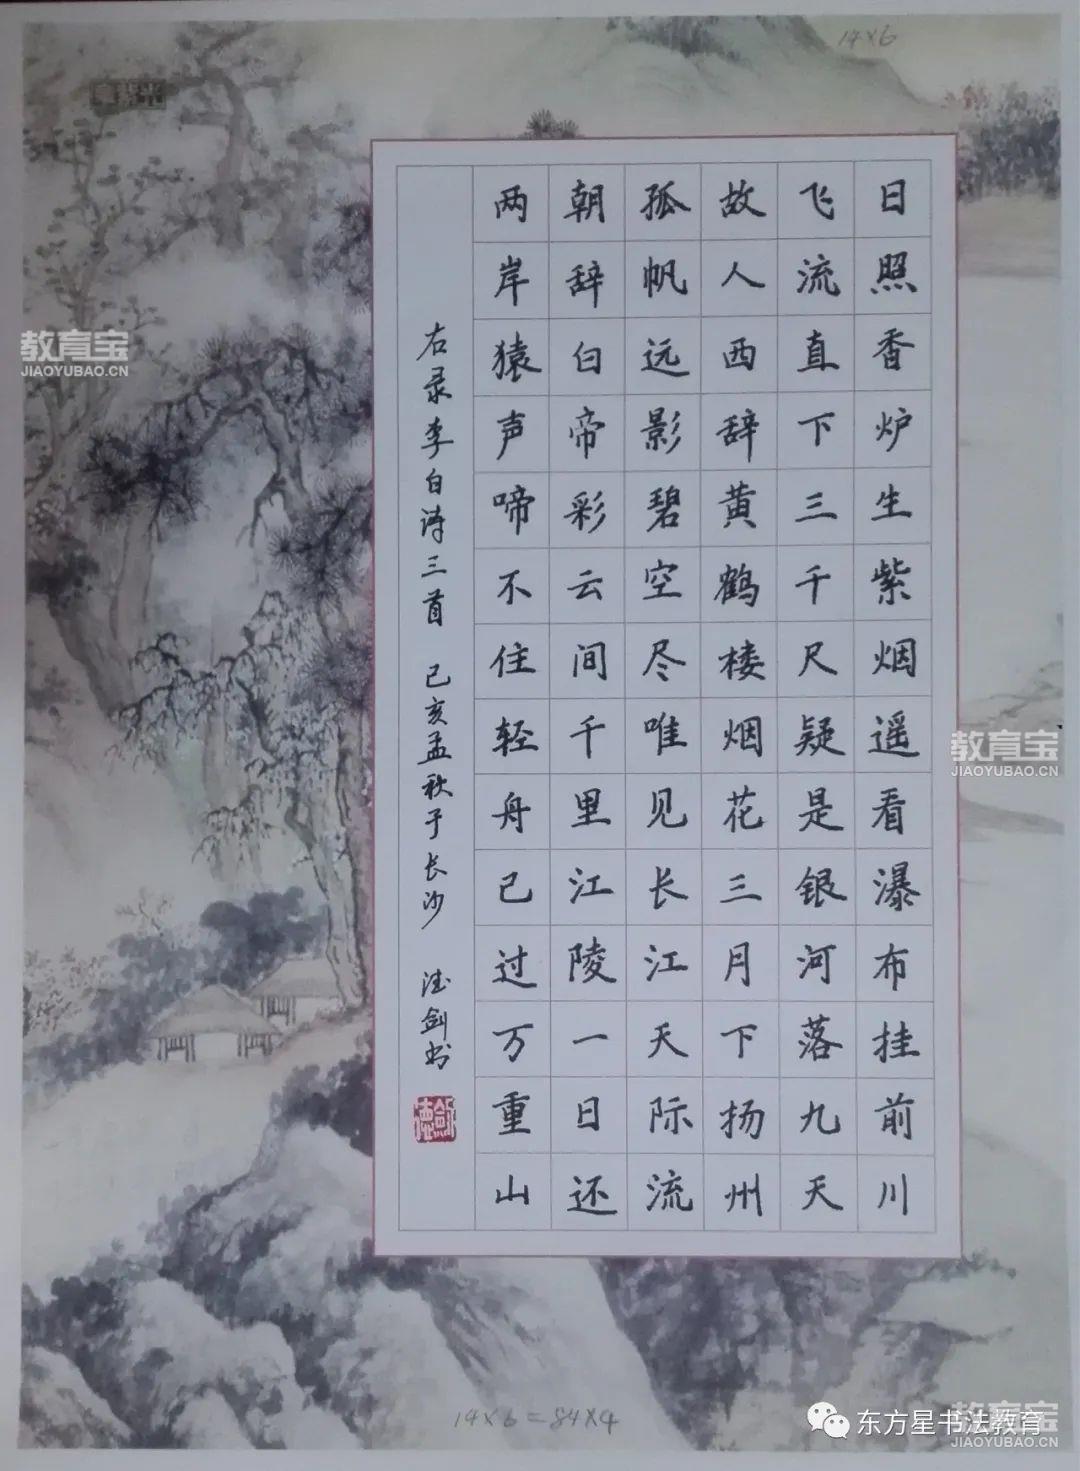 日照香炉生紫烟遥看瀑布挂前川
飞流直下三千尺疑是银河落九天
故人西辞黄鹤楼烟花三月下扬州
孤帆远影碧空尽唯见长江天际流
朝辞白帝彩云间千里江陵一日还
两岸猿声啼不住轻舟已过万重山
右录李白诗三首 己亥孟秋于长沙 德剑书
德剑
14×6
14×6=84×4
教育宝
JIAOYUBAO.CN
教育宝
JIAOYUBAO.CN
东方星书法教育
教育宝
JIAOYUBAO.CN